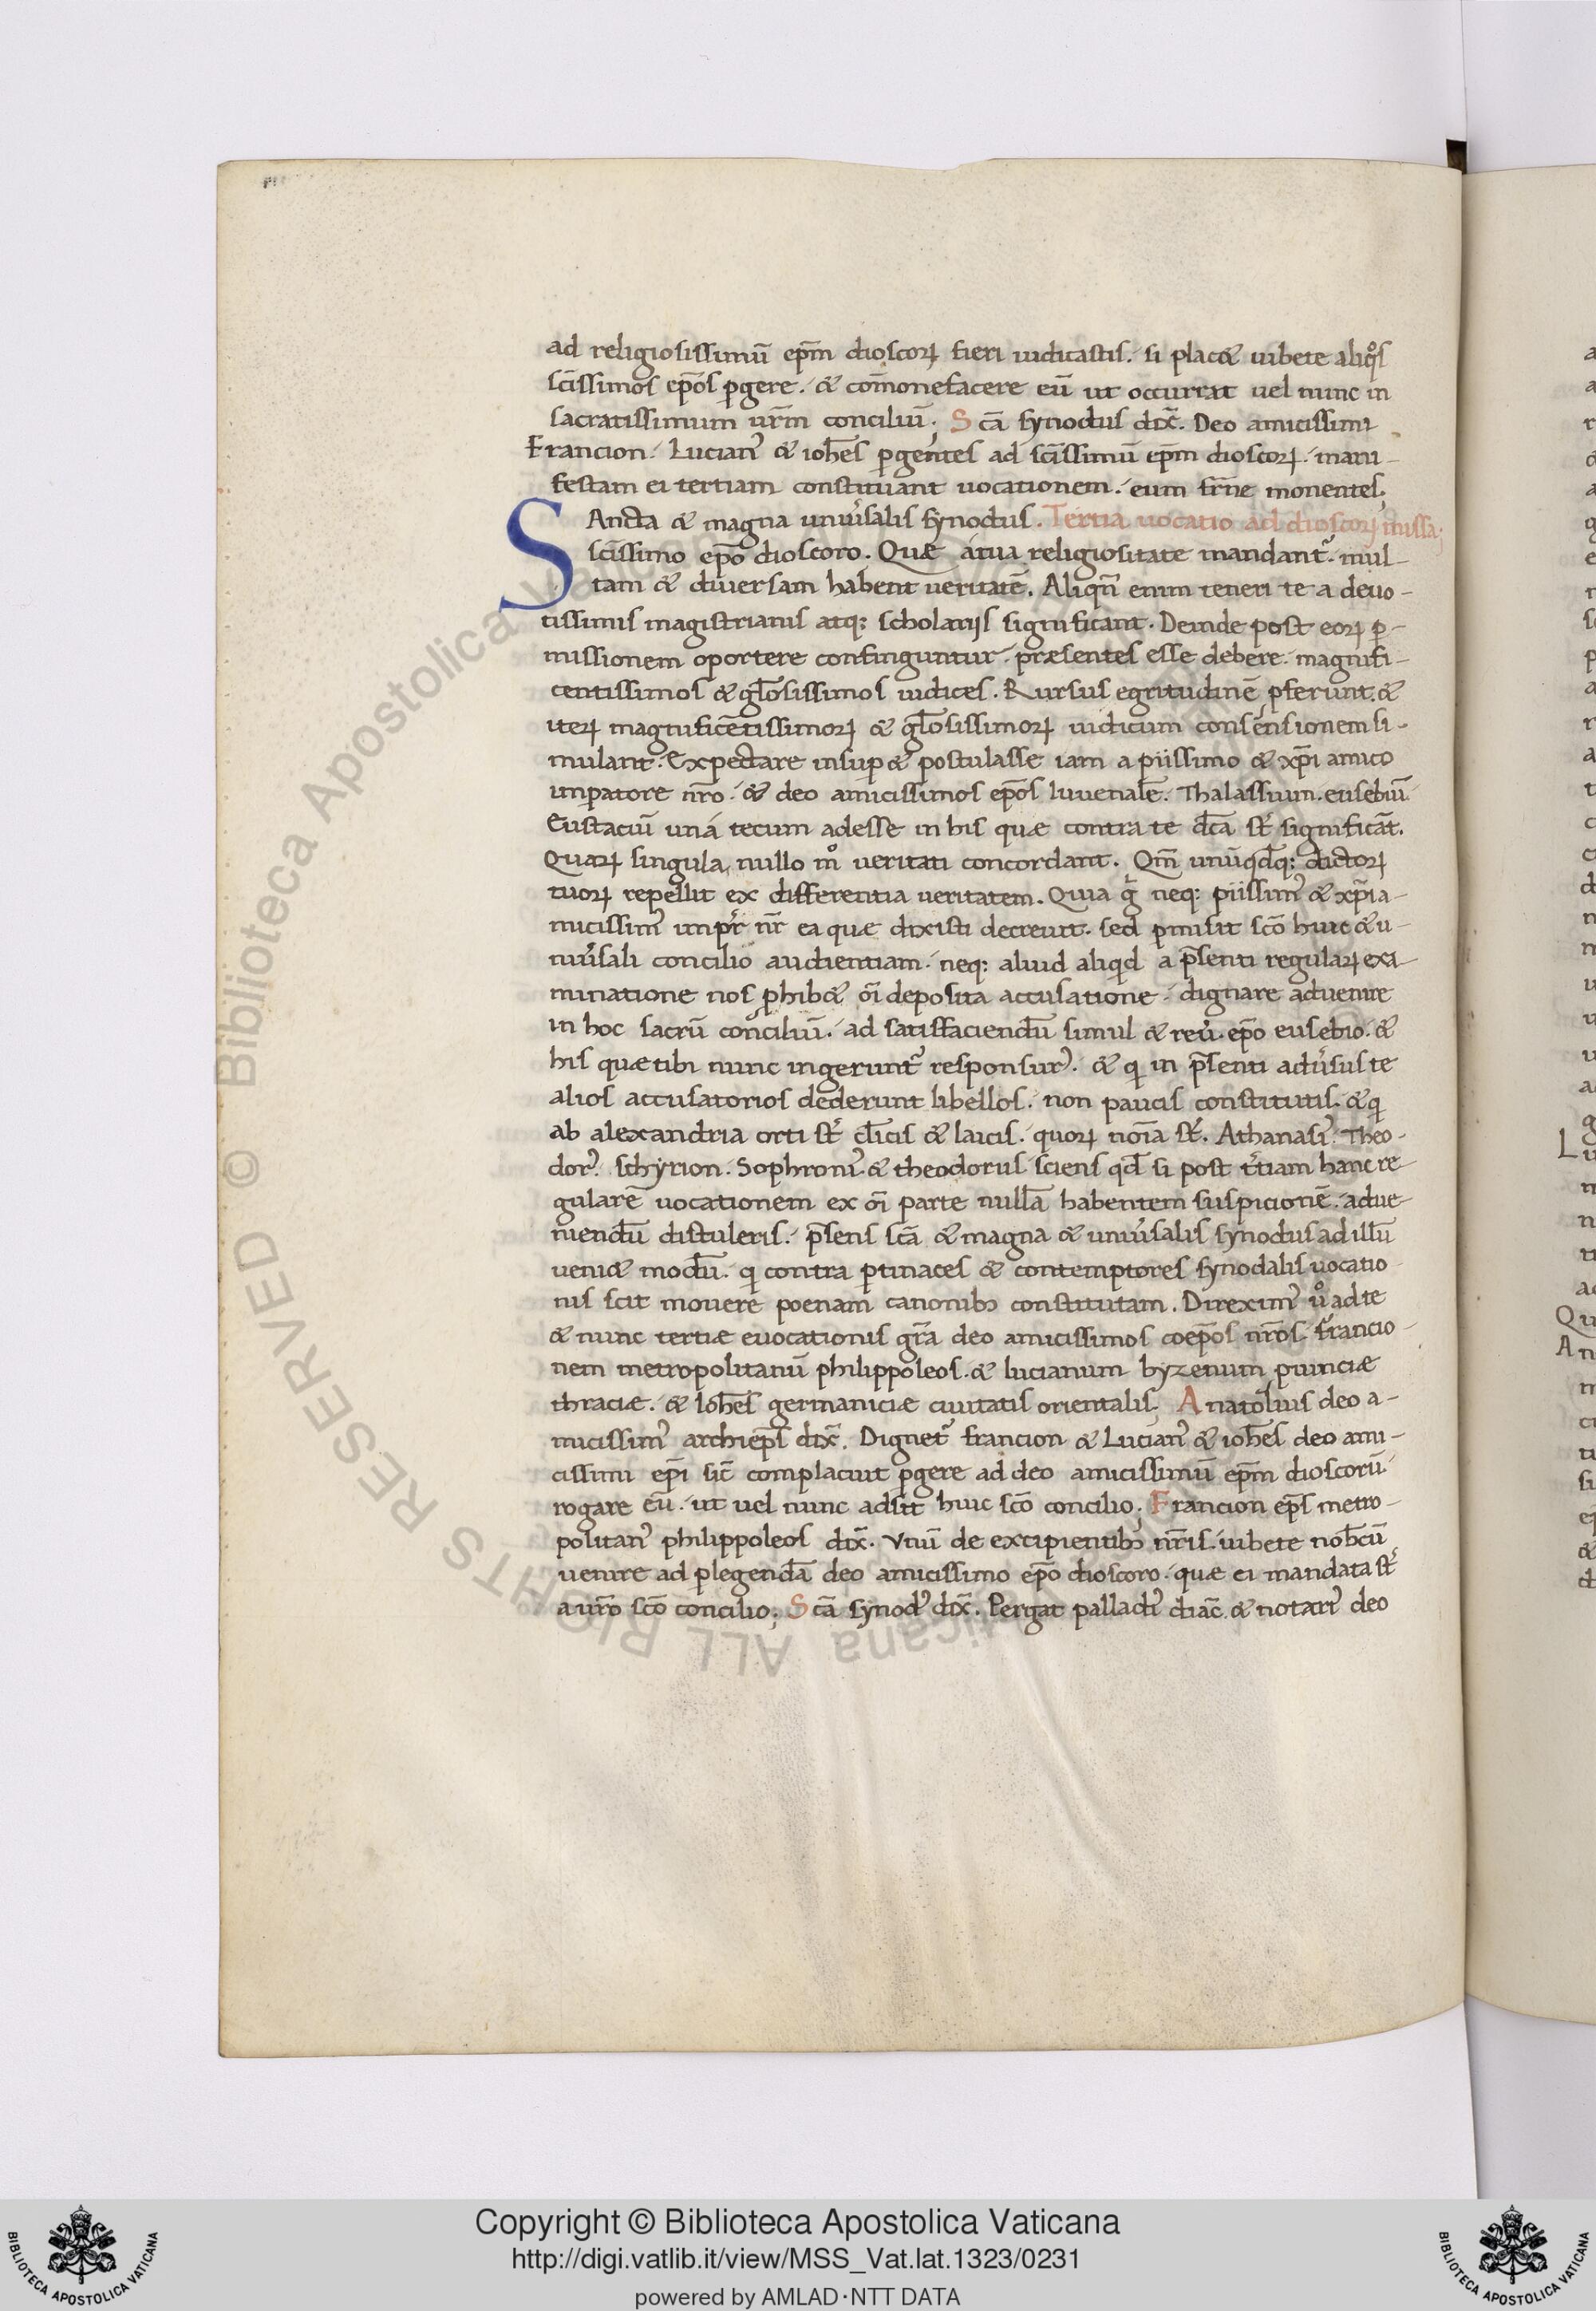 ad religiosissimū ep̄m dioscoꝝ fieri iudicastis. si placꝫ iubete aliqͦs
sc̄issimos ep̄os ꝑgere. & com̄onefacere eū ut occurrat uel nunc in
sacratissimum ur̄m conciliū; Sc̄a synodus dix̄. Deo amicissimi
Francion. Lucianꝰ & ioh̄es ꝑgentes ad sc̄issimū ep̄m dioscoꝝ. mani-
festam ei tertiam constituant uocationem. eum fr̄ne monentes;
SAncta & magna uniu̓salis synodus. Tertia uocatio ad dioscoꝝ missa;
sc̄issimo ep̄o dioscoro. Quæ a tua religiositate mandant᷑. mul-
tam & diuersam habent ueritatē. Aliqn̄ enim teneri te a deuo-
tissimis magistrianis atq; scholarijs significant. Deinde post eoꝝ ꝑ-
missionem oportere confinguntur. præsentes esse debere. magnifi-
centissimos & gl̄osissimos iudices. Rursus egritudinē ꝓferunt. &
iteꝝ magnificētissimoꝝ & gl̄osissimoꝝ iudicum consensionem si-
mulant. Expectare insuꝑ & postulasse iam a piissimo & xp̄i amico
imꝑatore nr̄o. & deo amicissimos ep̄os Iuuenalē. Thalassium. eusebiū.
Eustaciū unā tecum adesse in his quæ contra te dc̄a st̓ significāt.
Quaꝝ singula, nullo mͦ ueritati concordant. Qm̄ unūqdq; dictoꝝ
tuoꝝ repellit ex differentia ueritatem. Quia g̓ neq; piissimꝰ & xp̄i a-
micissimꝰ impr̓ nr̄ ea quæ dixisti decreuit. sed ꝑmisit sc̄o huic & u-
niu̓sali concilio audientiam. neq; aliud aliqid a p̄senti regulaꝝ exa-
minatione nos ꝓhibꝫ oī deposita accusatione. dignare aduenire
in hoc sacrū conciliū. ad satisfaciendū simul & reu̓. ep̄o eusebio. &
his quæ tibi nunc ingerunt᷑ responsurꝰ. & qi in p̄senti adu̓sus te
alios accusatorios dederunt libellos. non paucis constitutis. & qi
ab alexandria orti st̓ cl̄icis & laicis. quoꝝ noīa st̓. Athanasiꝰ. Theo-
dorꝰ. schyrion. Sophroniꝰ. & theodorus sciens qd̄ si post t̓tiam hanc re-
gularē uocationem ex oī parte nullā habentem suspicionē. adue-
niendū distuleris. p̄sens sc̄a & magna & uniu̓salis synodus ad illū
ueniꝫ modū. qi contra ꝑtinaces & contemptores synodalis uocatio
nis scit mouere poenam canonibꝫ constitutam. Direximꝰ uͦ ad te
& nunc tertiæ euocationis gr̄a deo amicissimos coep̄os nr̄os. francio-
nem metropolitanū philippoleos. & lucianum byzenum ꝓuinciæ
thraciæ. & Ioh̄es germaniciæ ciuitatis orientalis; Anatolius deo a-
micissimꝰ archiep̄s dix̄. Dignet᷑ francion & Lucianꝰ & ioh̄es deo ami-
cissimi ep̄i sic̄ complacuit ꝑgere ad deo amicissimū ep̄m dioscorū.
rogare eū. ut uel nunc adsit huic sc̄o concilio; Francion ep̄s metro-
politanꝰ philippoleos dix̄. Vnū de excipientibꝫ nr̄is. iubete nob̄cū
uenire ad ꝑlegendā deo amicissimo ep̄o dioscoro. quæ ei mandata st̓
a ur̄o sc̄o concilio; Sc̄a synodꝰ dix̄. Pergat palladiꝰ diac̄. & notariꝰ deo
Copyright © Biblioteca Apostolica Vaticana
http://digi.vatlib.it/view/MSS_Vat.lat.1323/0231
powered by AMLAD·NTT DATA